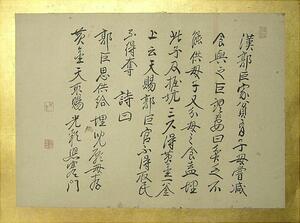 漢郭巨家貧有子母嘗減
食與之巨謂妻曰貧乏不
能供母子又分母之食盍埋
此子及掘坑三尺得黄金釜
上云天賜郭巨官不得取民
不得奪 詩曰
郭巨思供給埋兒願母存
黄金天所賜光彩照寒門